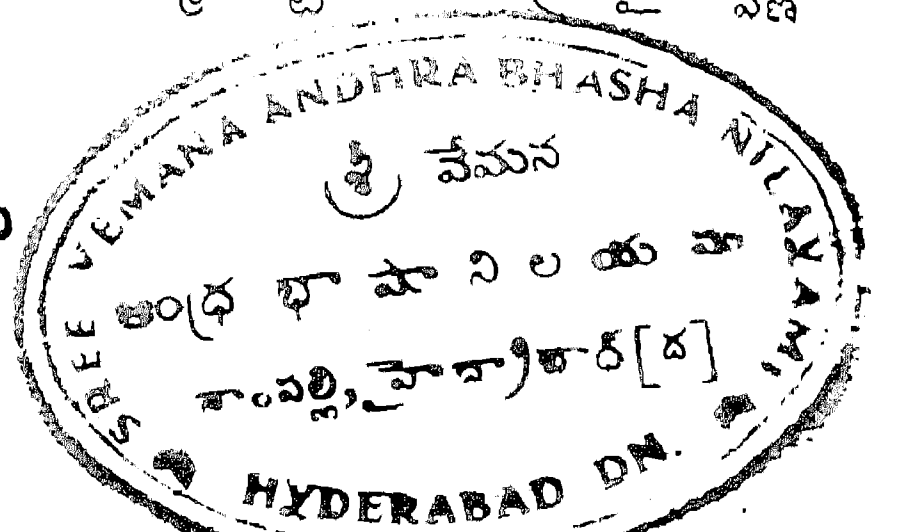 SREE VEMANA ANDHRA BHASHA NILAYAM,
శ్రీ వేమన
ఆంధ్ర భాషానిలయము
నాంపల్లి, హైద్రాబాద్ [ద]
HYDERABAD DN.